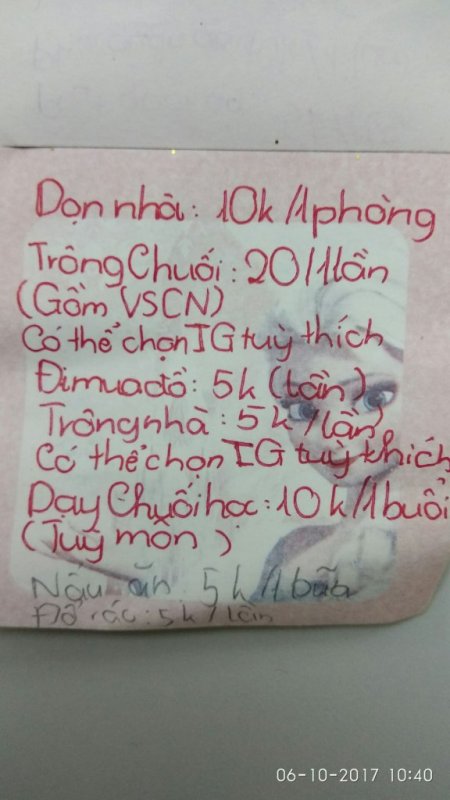 Dọn nhà: 10k/1phòng
Trông Chuối: 20/1lần
(Gồm VSCN)
Có thể chọn IG tuỳ thích
Đi mua đồ: 5k (lần)
Trông nhà: 5k/lần)
Có thể chọn IG tuỳ khích
Dạy Chuối học: 10k/1buổi
(Tuỳ môn)
Nậu ăn: 5k/1bữa
Đổ rác: 5k/lần
06-10-2017 10:40